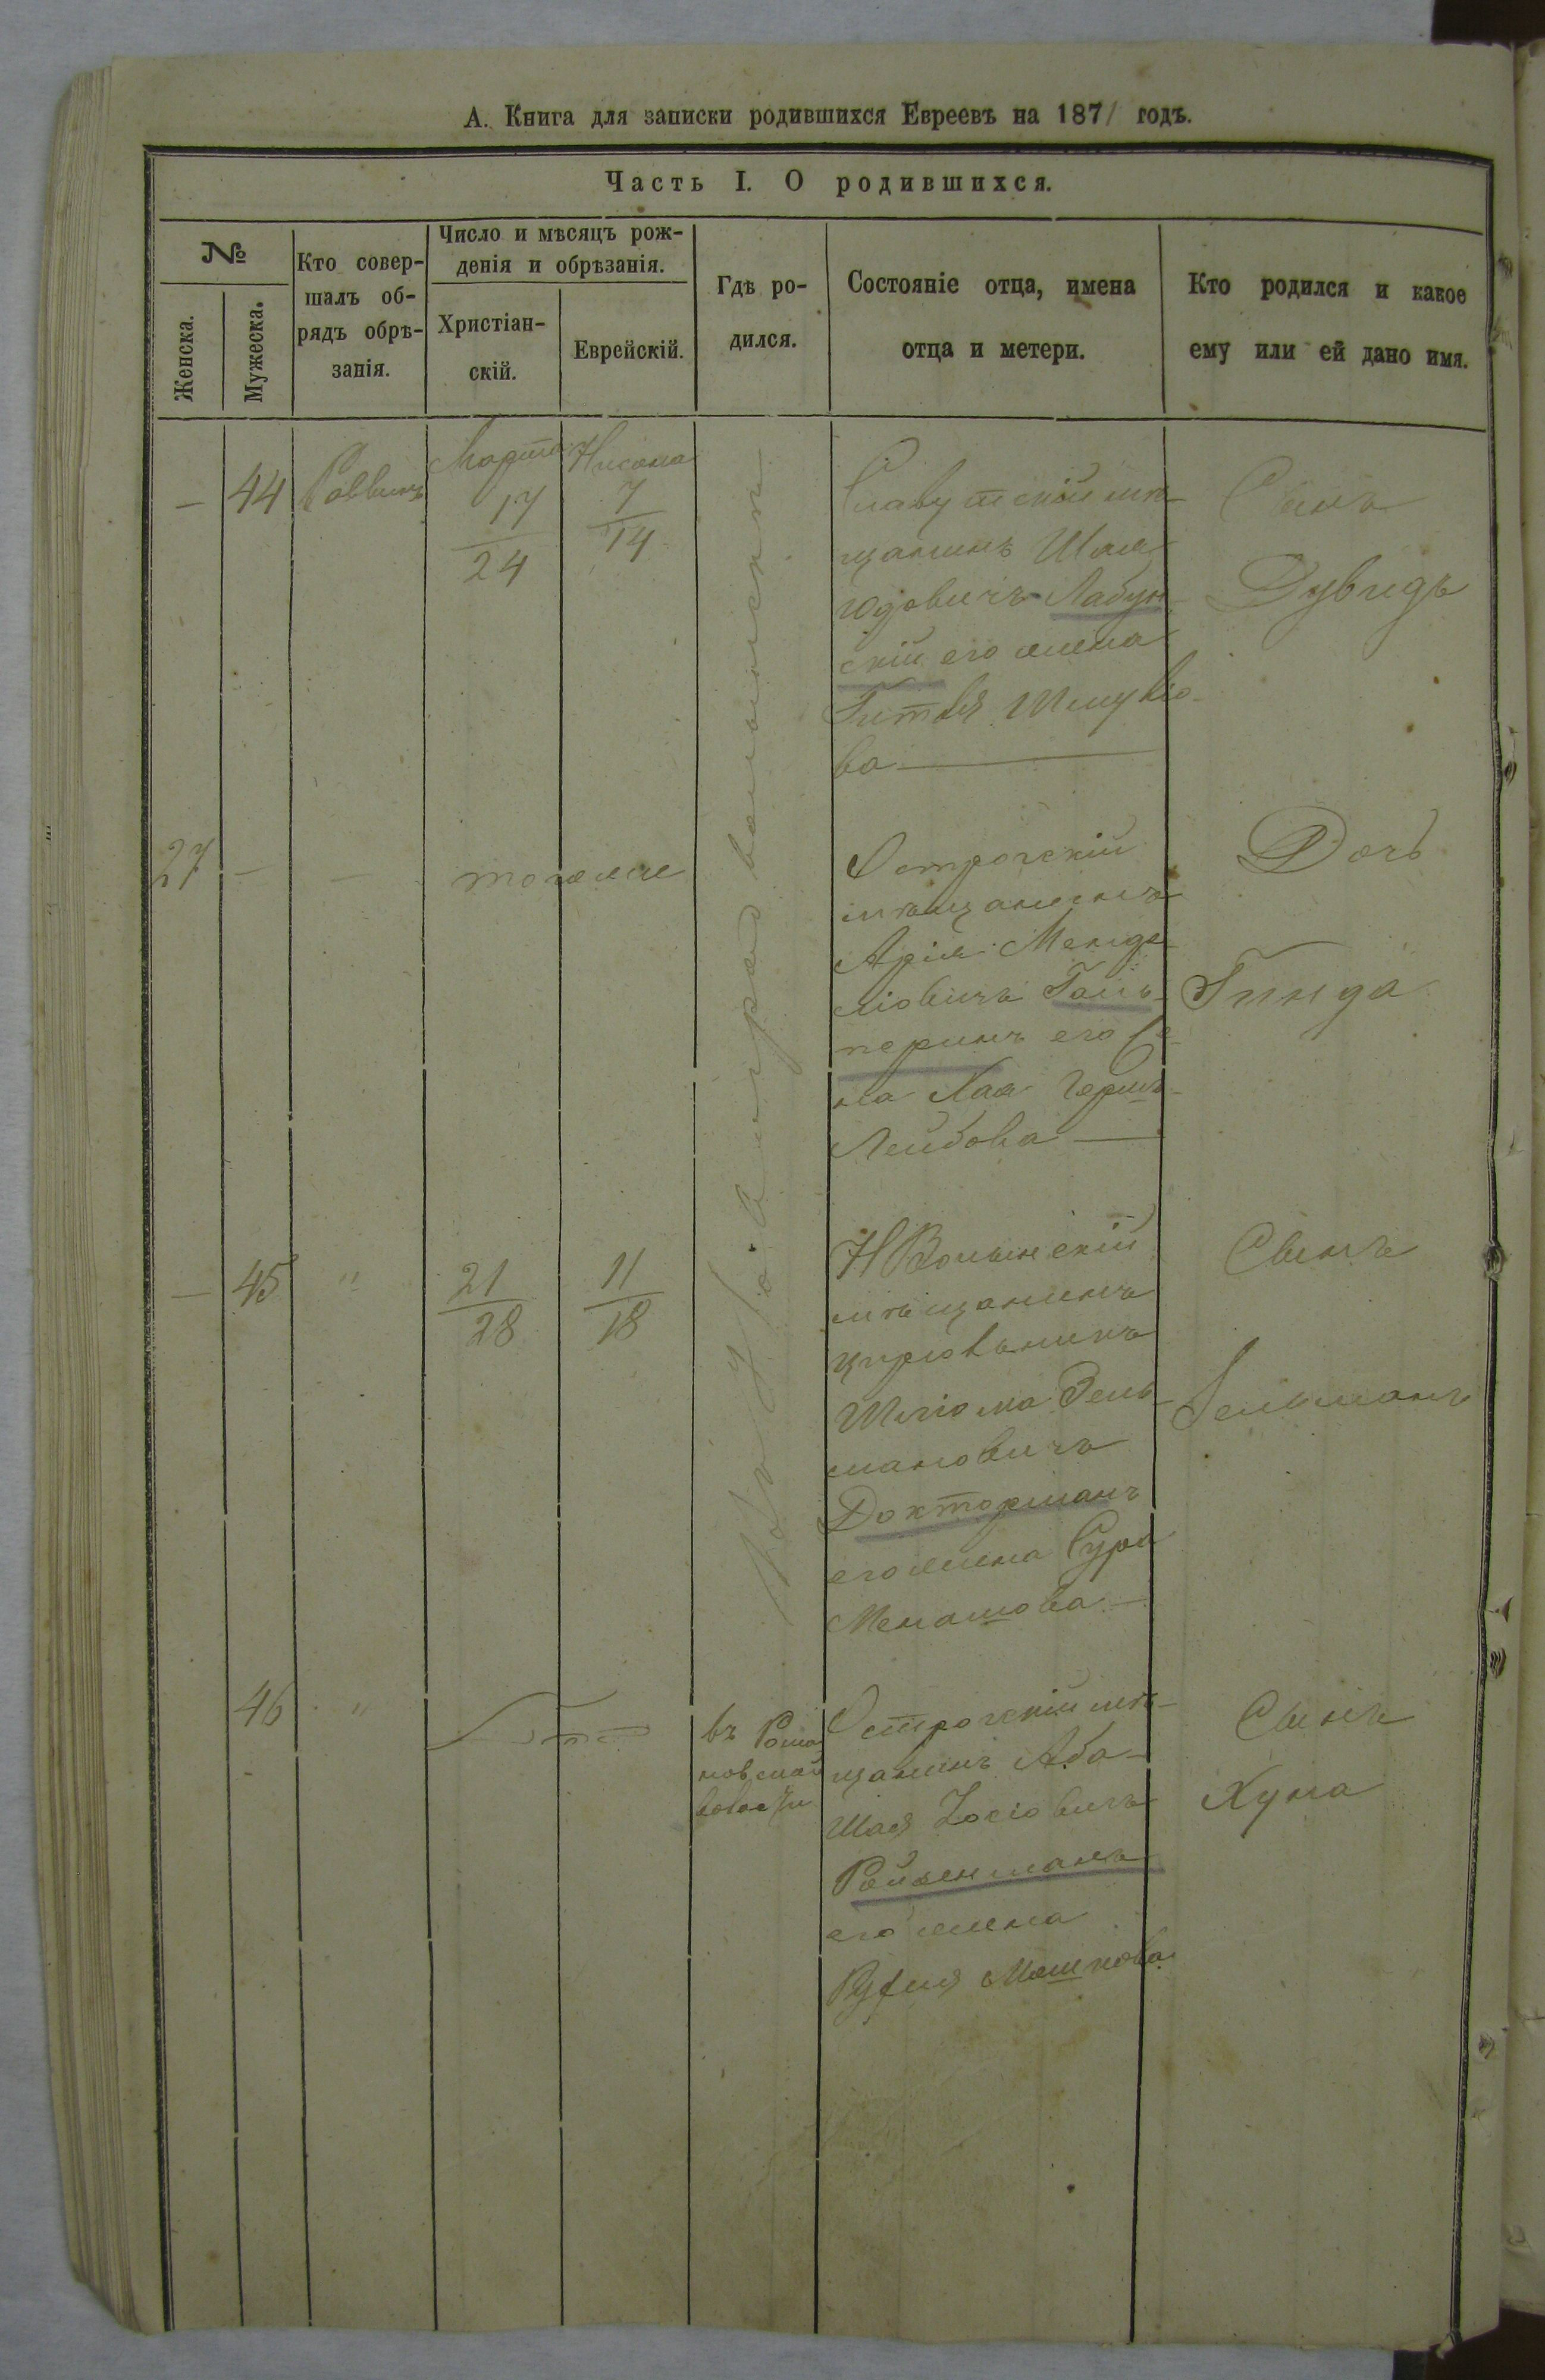 А. Книга для записки родившихся Евреевъ на 1871 годъ.
Часть I. О родившихся.
№
Женска.
Мужеска.
Кто совер-
шалъ об-
рядъ обрѣ-
занія.
Число и мѣсяцъ рож-
денія и обрѣзанія.
Христіан-
скій.
Еврейскій.
Гдѣ ро-
дился.
Состояніе отца, имена
отца и метери.
Кто родился и какое
ему или ей дано имя.
— 44 Раввинъ
Марта
17
24
Нисона
7
14
Славутскій мѣ-
щанинъ Шая
Юдовичъ Лабун
скій его жена
Гитля Шмул
ва —
Сынъ
Дувидъ
27 — —
тогоже
Острогскій
мѣщанинъ
Арія Менде
ліовичъ Галь-
перинъ его же
на Хая Герш-
Лейбова —
Дочь
Гинда
— 45 "
21
28
11
18
НВолынскій
мѣщанинъ
цирюльникъ
Шліома Зель-
мановичъ
Докторманъ
его жена Сура
Менашова —
Сынъ
Зельманъ
въ Новоградволынскѣ
46 "
въ Рома
новской
волости
Острогскій мѣ-
щанинъ Аба-
Шая Іосіовичъ
Ройзенманъ
его жена
Рухля Мошкова
Сынъ
Хуна